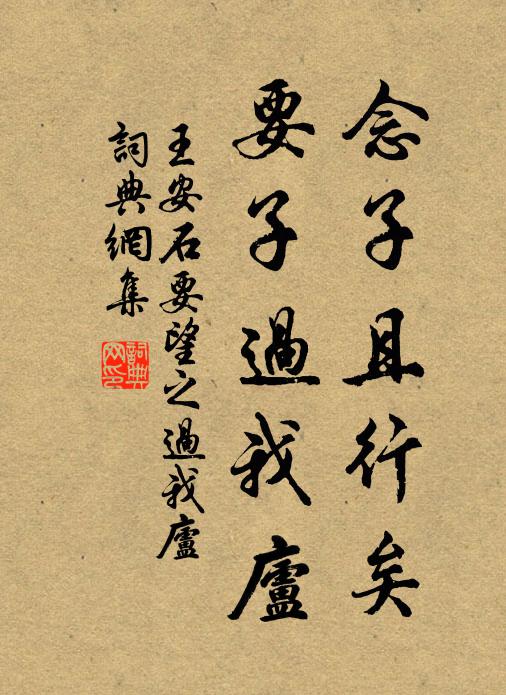 念子且行矣
要子過我廬
王安石要望之過我廬
詞典網集
詞典網印